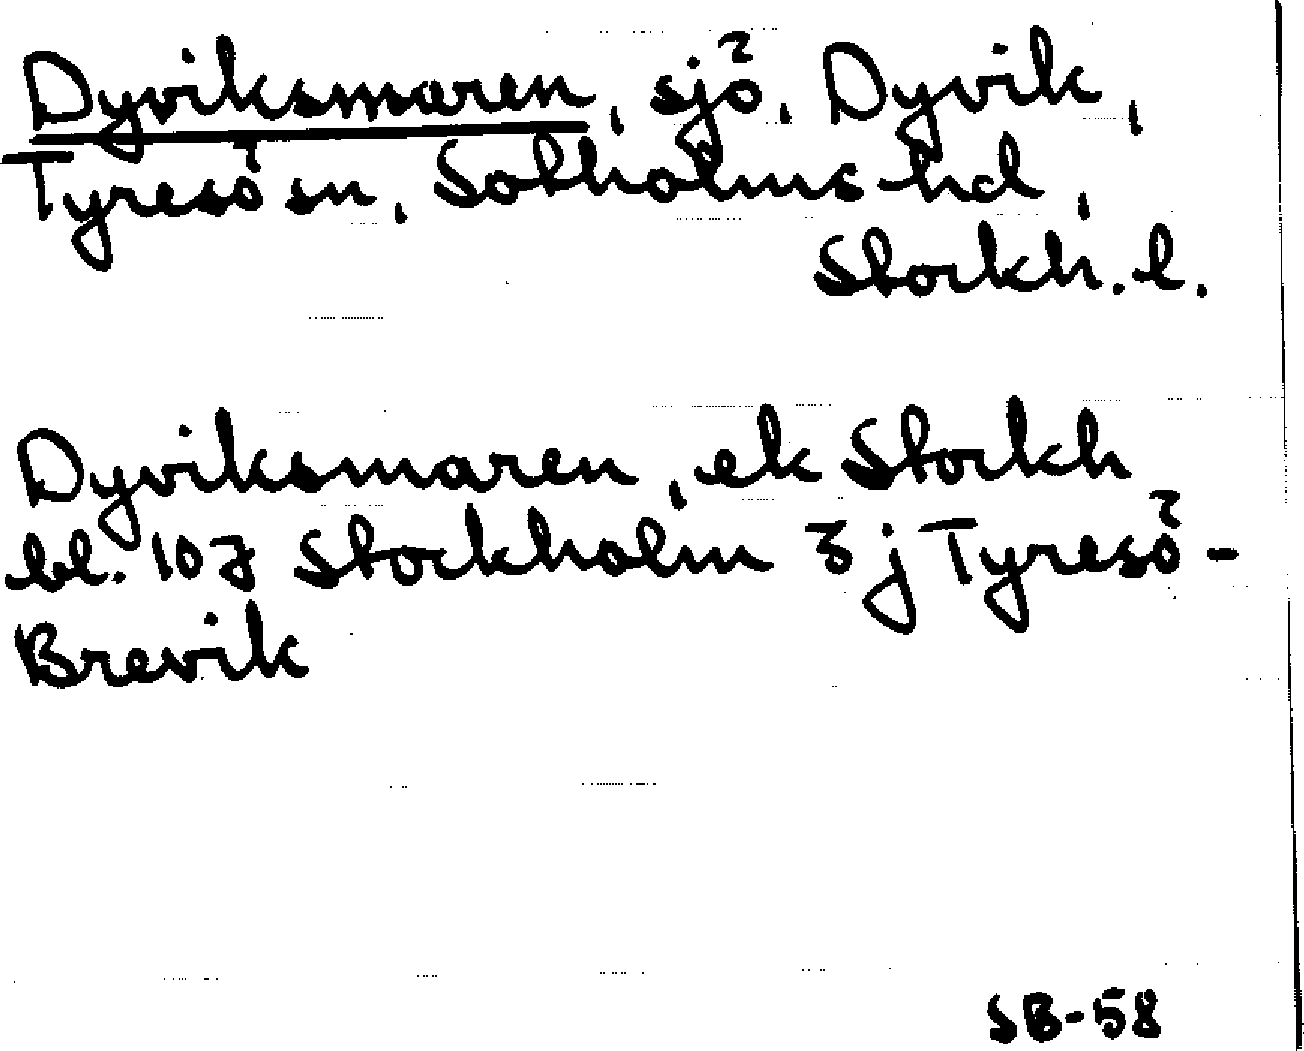 Dyviksmaren, sjö, Dyvik,
Tyresö sn, Sotholms hd,
Stockh. l.
Dyviksmaren, ek Stockh
bl. 10J Stockholm 3 j Tyresö-
Brevik
SB-58